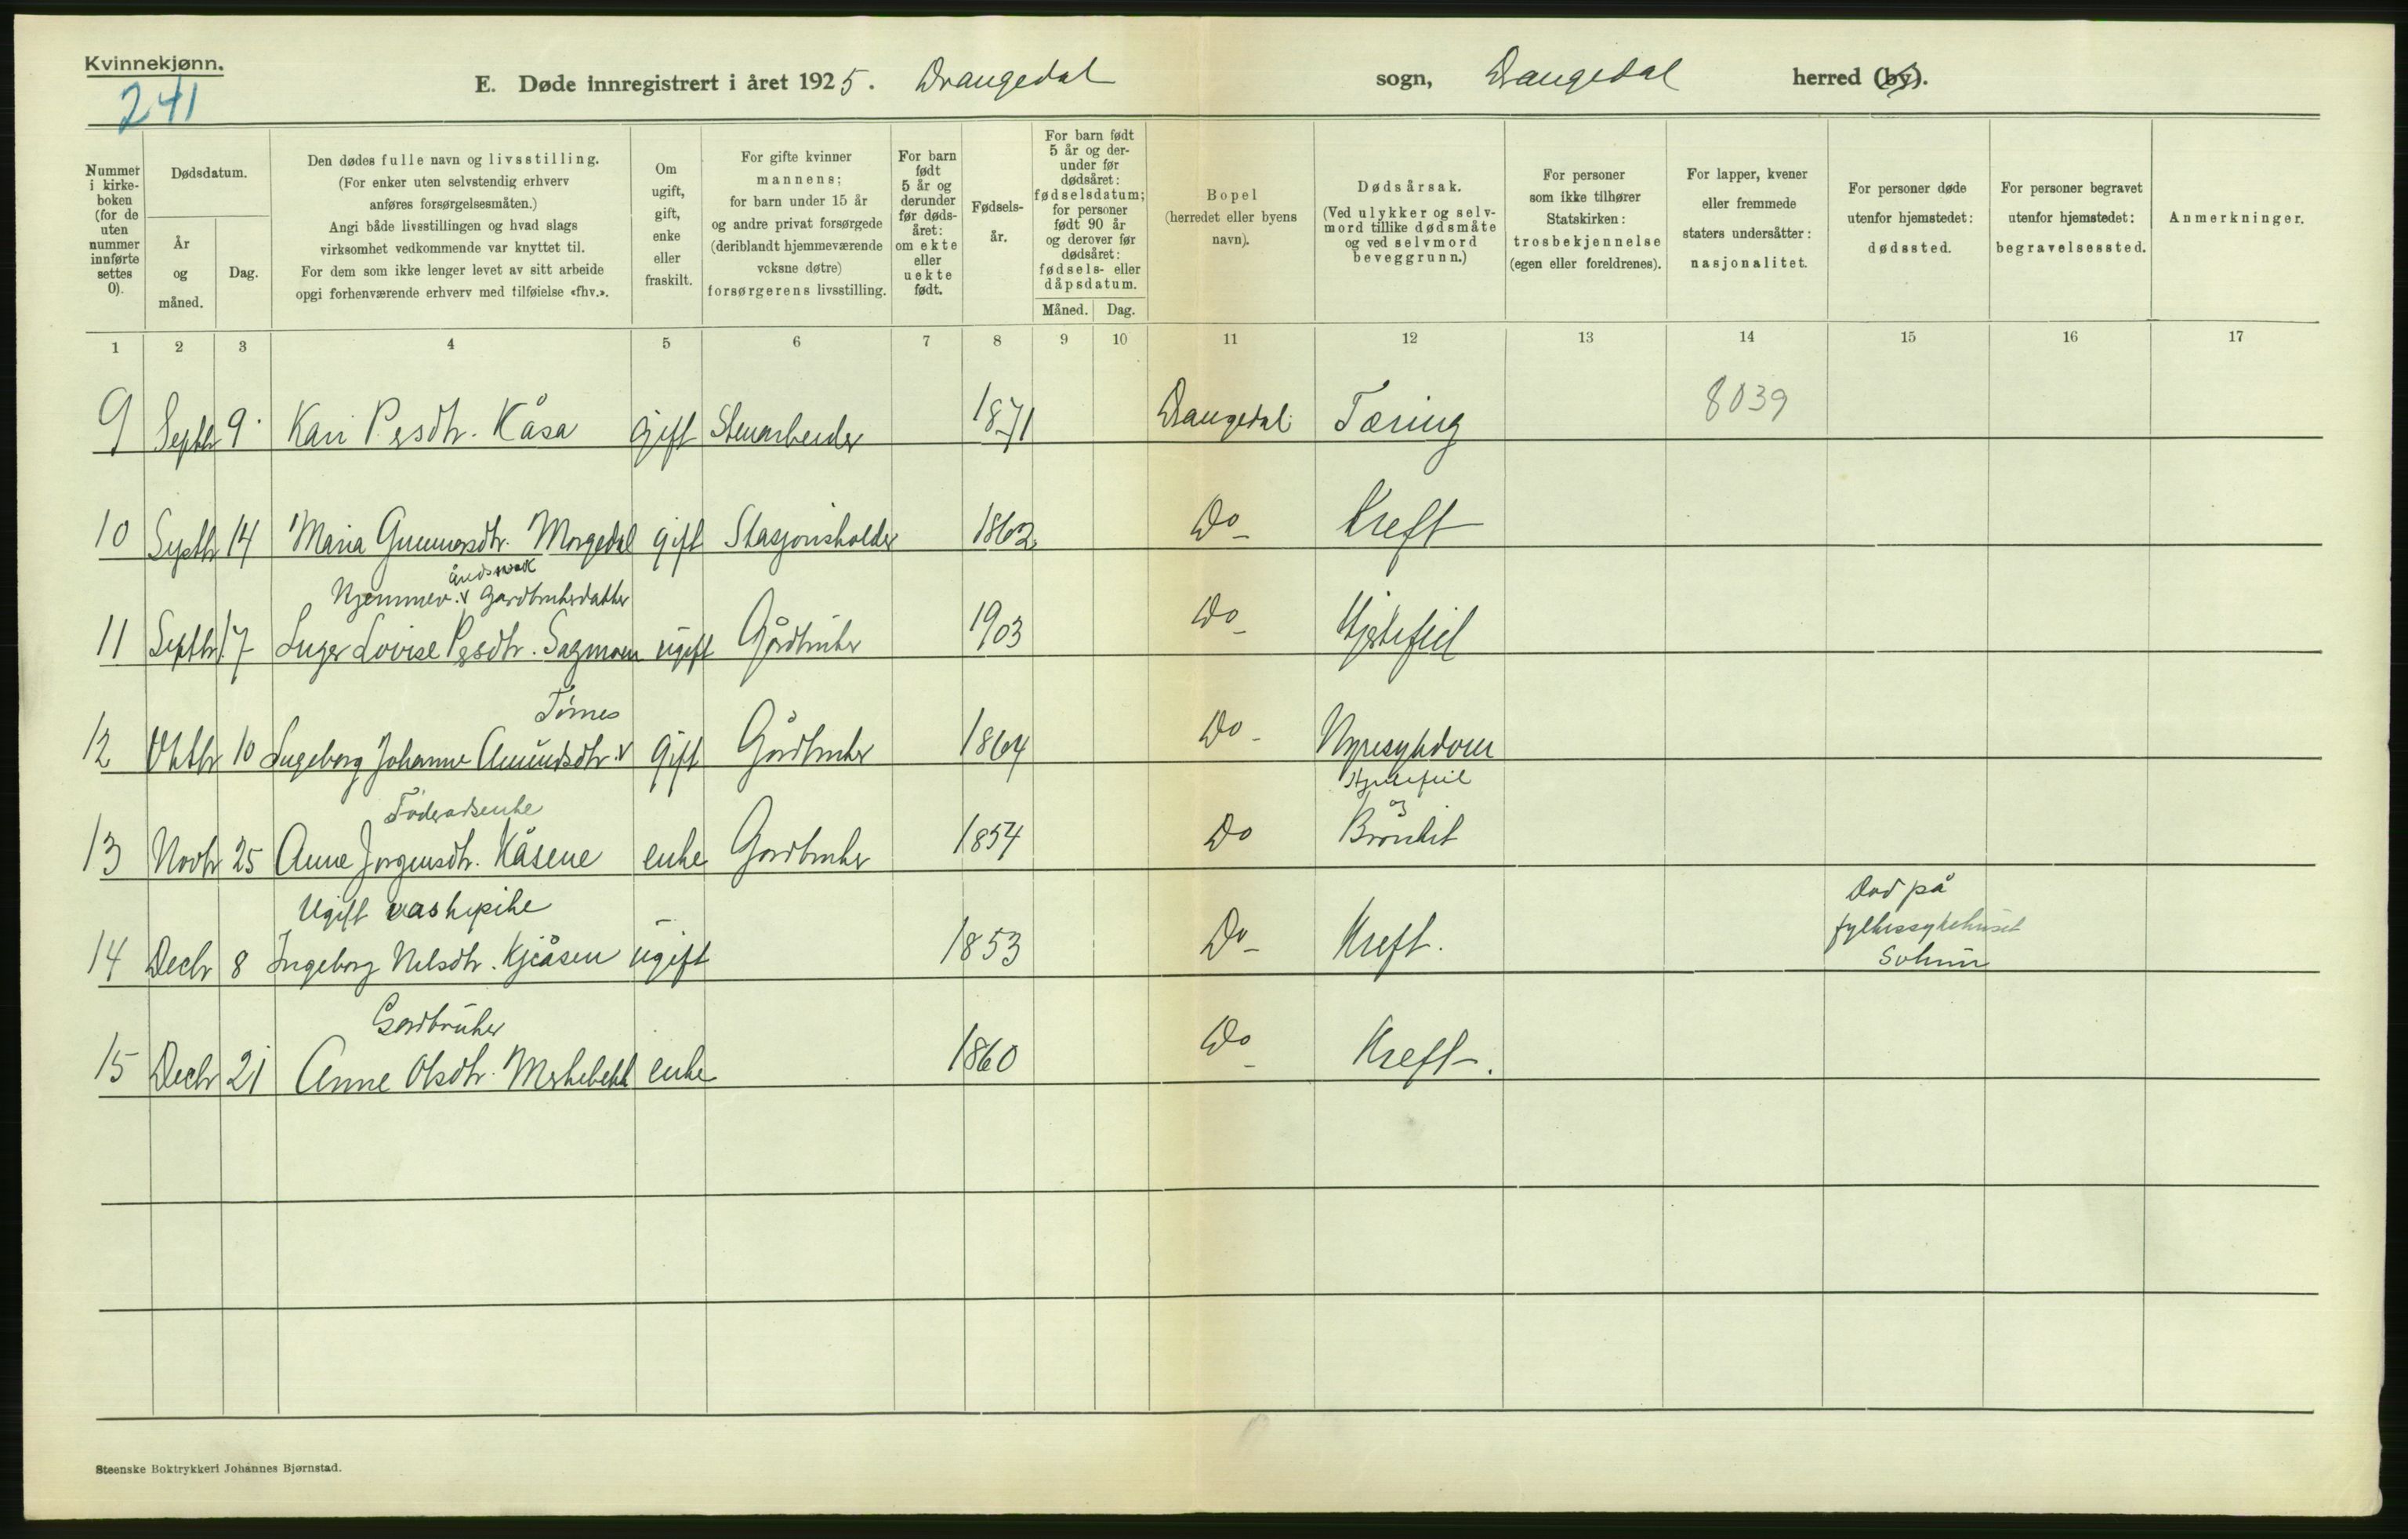 Kvinnekjønn.
241
E. Døde innregistrert i året 1925. Drangedal sogn, Drangedal herred (by).
Nummer i kirkeboken (for de uten nummer innførte settes 0).
Dødsdatum.
År og måned.
Dag.
Den dødes fulle navn og livsstilling.
(For enker uten selvstendig erhverv
anføres forsørgelsesmåten.)
Angi både livsstillingen og hvad slags
virksomhet vedkommende var knyttet til.
For dem som ikke lenger levet av sitt arbeide
opgi forhenværende erhverv med tilføielse «fhv.».
Om ugift, gift, enke eller fraskilt.
For gifte kvinner
mannens;
for barn under 15 år
og andre privat forsørgede
(deriblandt hjemmeværende
voksne døtre)
forsørgerens livsstilling.
For barn født 5 år og derunder før dødsåret: om ekte eller uekte født.
Fødselsår.
For barn født 5 år og derunder før dødsåret: fødselsdatum; for personer født 90 år og derover før dødsåret: fødsels- eller dåpsdatum.
Måned. Dag.
Bopel
(herredet eller byens
navn).
Dødsårsak.
(Ved ulykker og selvmord tillike dødsmåte og ved selvmord beveggrunn.)
For personer
som ikke tilhører
Statskirken:
trosbekjennelse
(egen eller foreldrenes).
For lapper, kvener
eller fremmede
staters undersåtter:
nasjonalitet.
For personer døde
utenfor hjemstedet:
dødssted.
For personer begravet
utenfor hjemstedet:
begravelsessted.
Anmerkninger.
1 2 3 4 5 6 7 8 9 10 11 12 13 14 15 16 17
9 Septbr 9. Kari Psdtr. Kåsa gift Stenarbeider 1871 Drangedal Tæring 8039
10 Septbr 14 Maria Gunnarsdtr. Morgedal gift Stasjonsholder 1862 Do Kreft
åndssvak
Hjemmev. v Gardbrukerdatter
11 Septbr 17 Inger Lovise Psdtr. Sagmoen ugift Gårdbruker 1903 Do Hjertefeil
Törnes
12 Oktbr 10 Ingeborg Johanne Amundsdtr. v Gift Gårdbruker 1864 Do Nyresykdom
Föderadsenke
Hjertefeil
og
13 Novbr 25 Anne Jörgensdtr. Kåsene enke Gardbruker 1854 Do Bronkit
Ugift vaskepike
14 Decbr 8 Ingeborg Nelsdtr. Kjeåsen ugift 1853 Do Kreft.
Död på
fylkessykehuset
Gardbruker
15 Decbr 21 Anne Olsdtr. Merkebekk enke 1860 Do Kreft.
Steenske Boktrykkeri Johannes Bjørnstad.